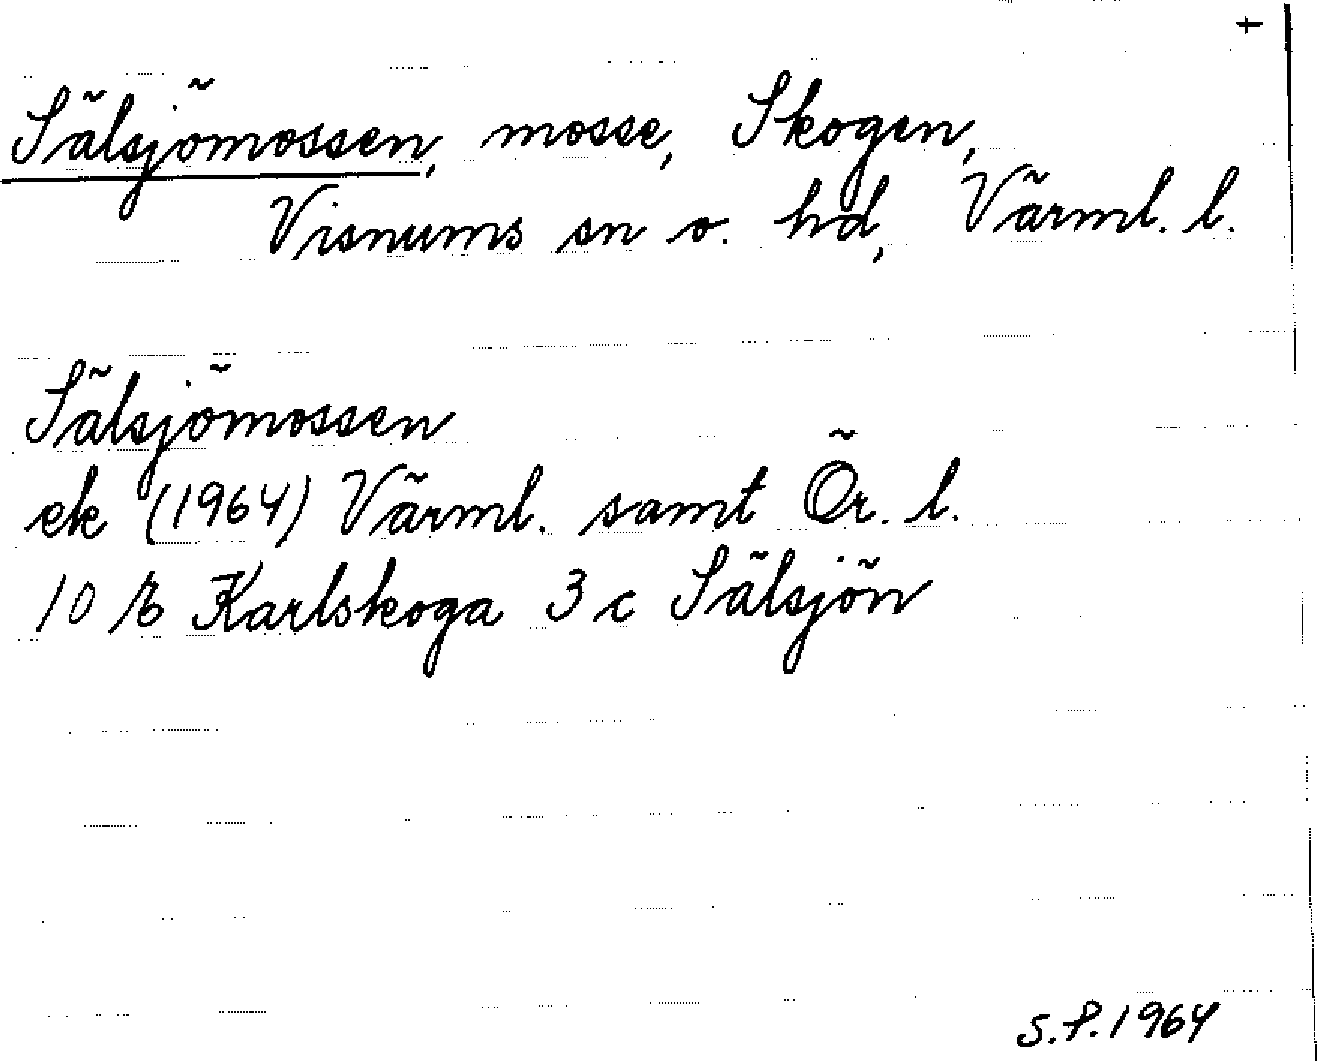 +
Sälsjömossen, mosse, Skogen,
Visnums sn o. hd, Värml. l.
Sälsjömossen
ek (1964) Värml. samt Ör. l.
10 E Karlskoga 3 c Sälsjön
S.F. 1964